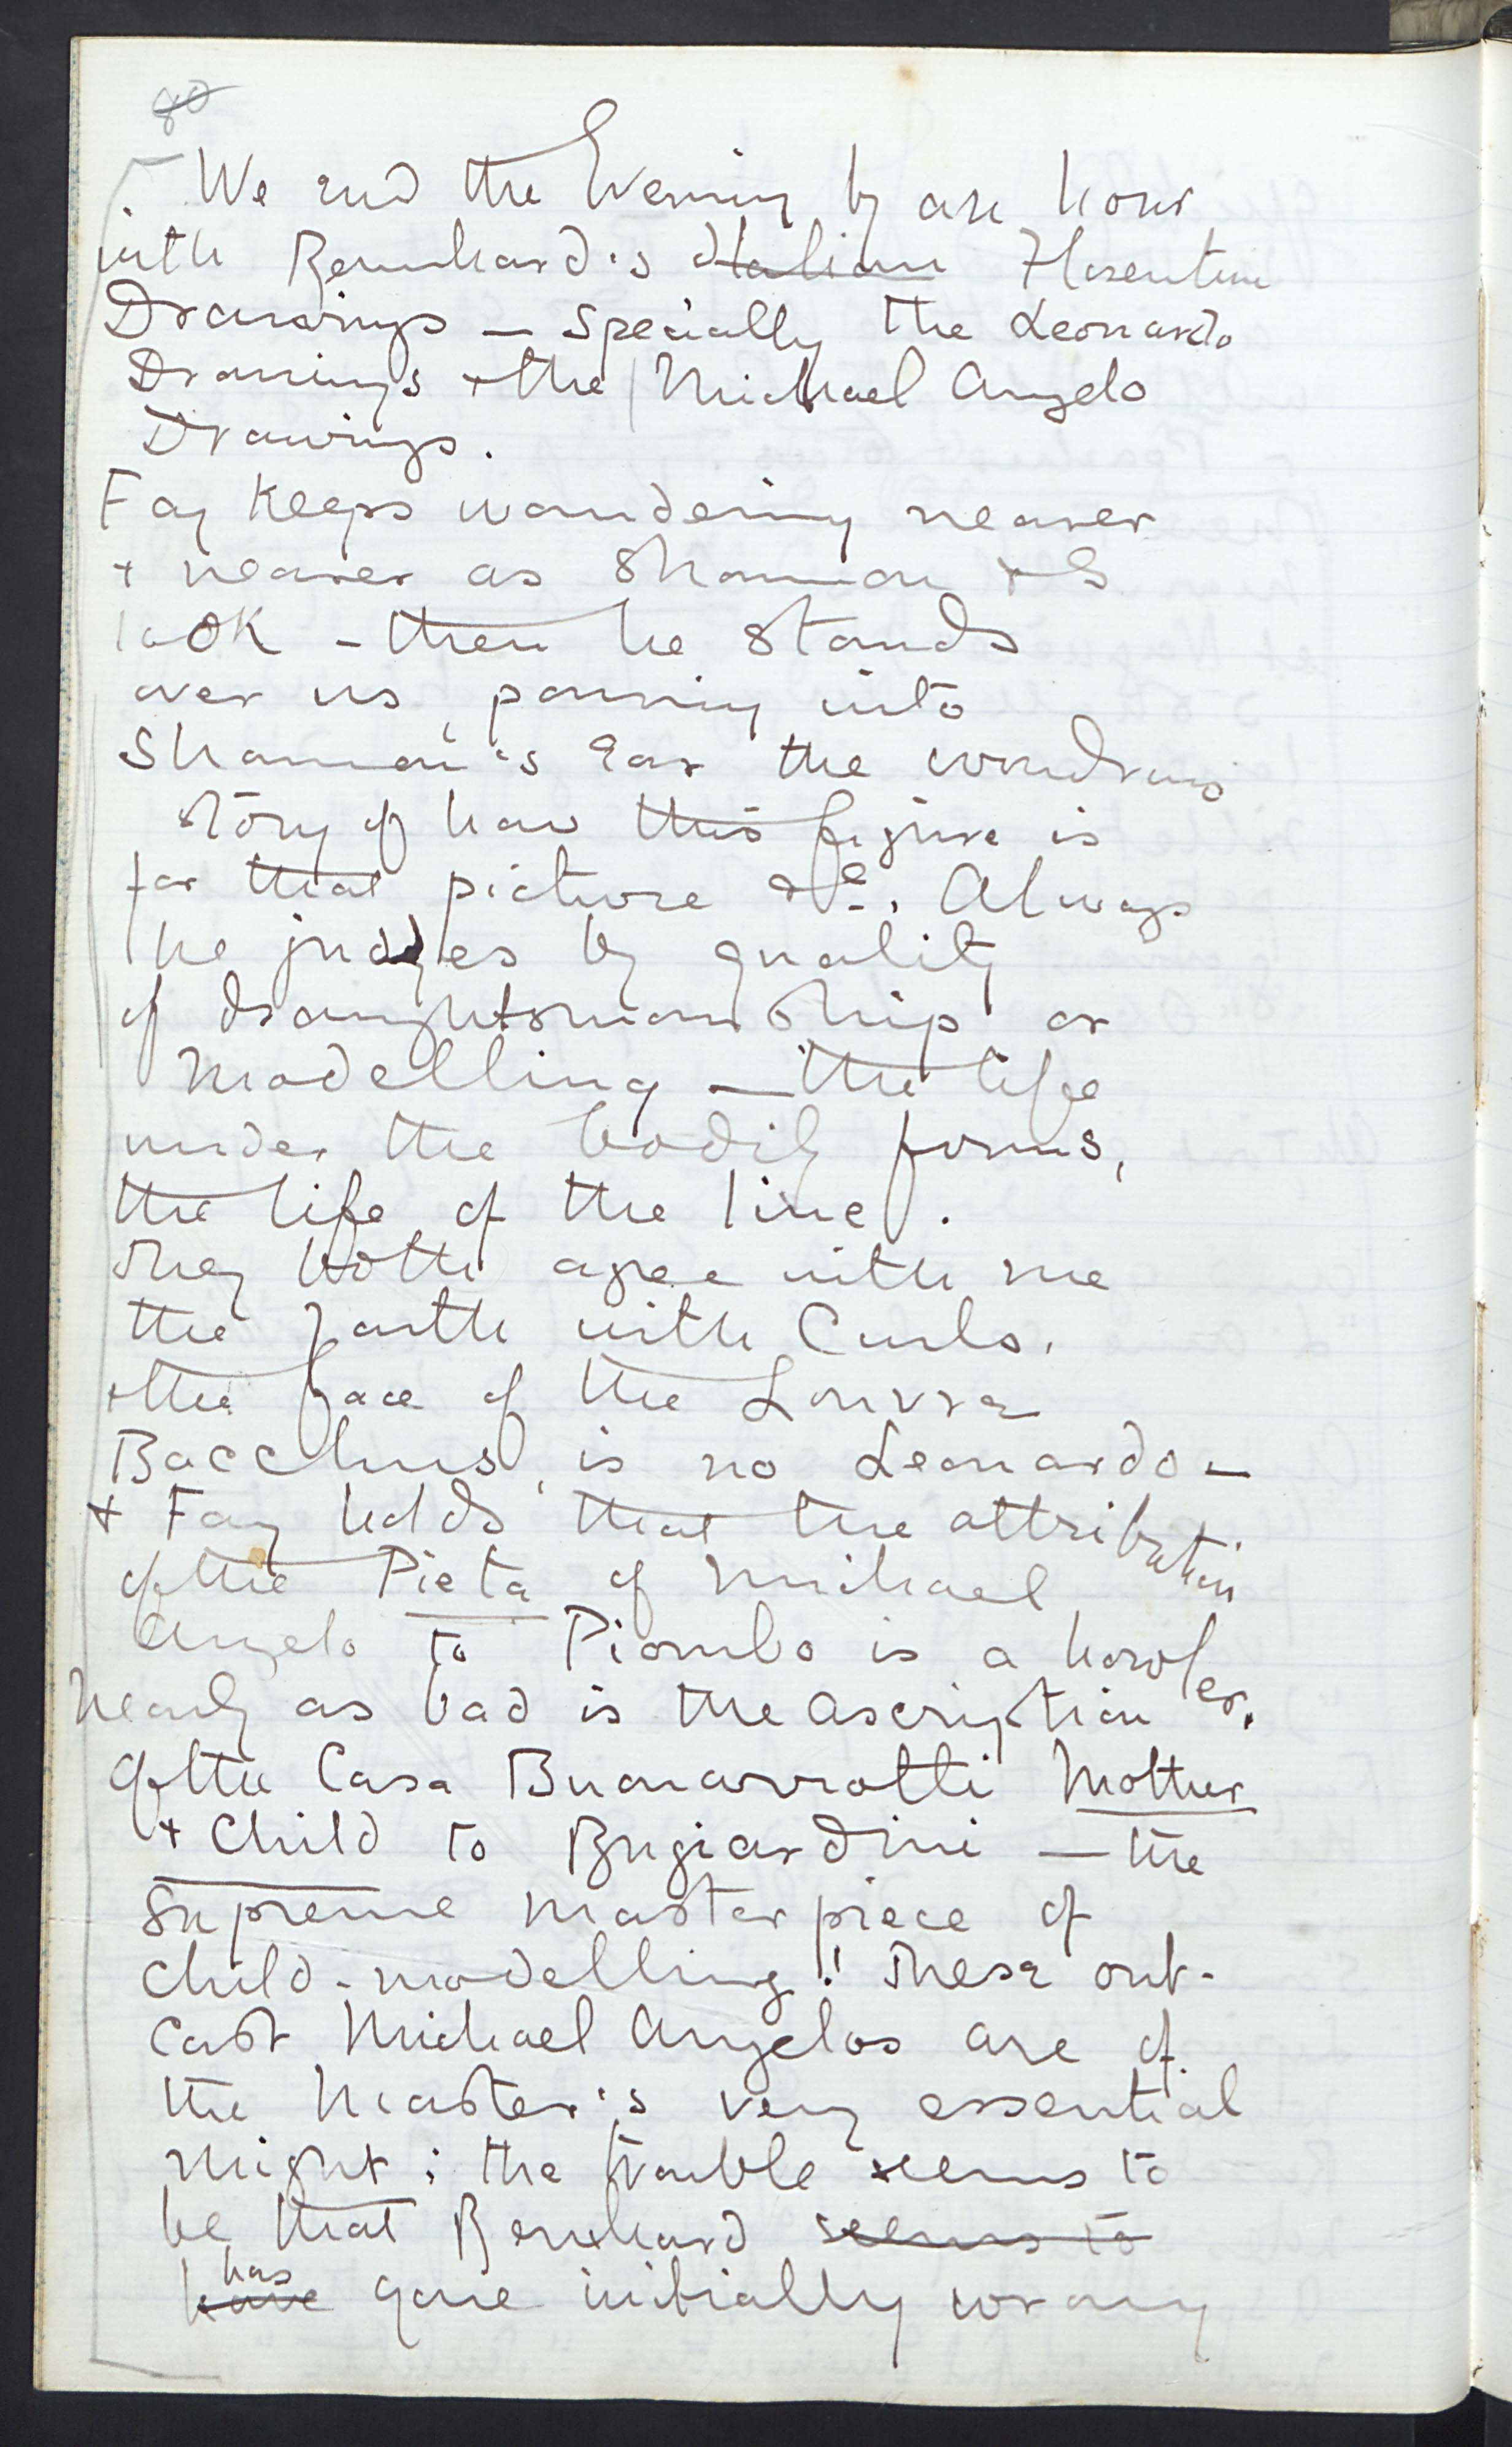 80
We end the Evening by an hour
with Bernhard's Italian Florentine
Drawings — specially the Leonardo
Drawings + the Michael Angelo
Drawings.
Fay keeps wandering nearer
+ nearer as Shannon + I
look – then he stands
over us, pouring into
Shannon's ear the wondrous
story of how this figure is
for that picture &c. Always
he judges by quality
of draughtsmanship or
modelling — the life
under the bodily forms,
the life of the line.
They both agree with me
the Youth with Curls,
+ the face of the Louvre
Bacchus, is no Leonardo –
+ Fay holds that the attribution
of the Pieta of Michael
Angelo to Piombo is a howler.
Nearly as bad is the ascription
of the Casa Buonarrotti Mother
+ Child to Bugiardini — the
supreme masterpiece of
child-modelling! These out-
cast Michael Angelos are of
the Master's very essential
might; the trouble seems to
be that Bernhard seems to
has
have gone initially wrong